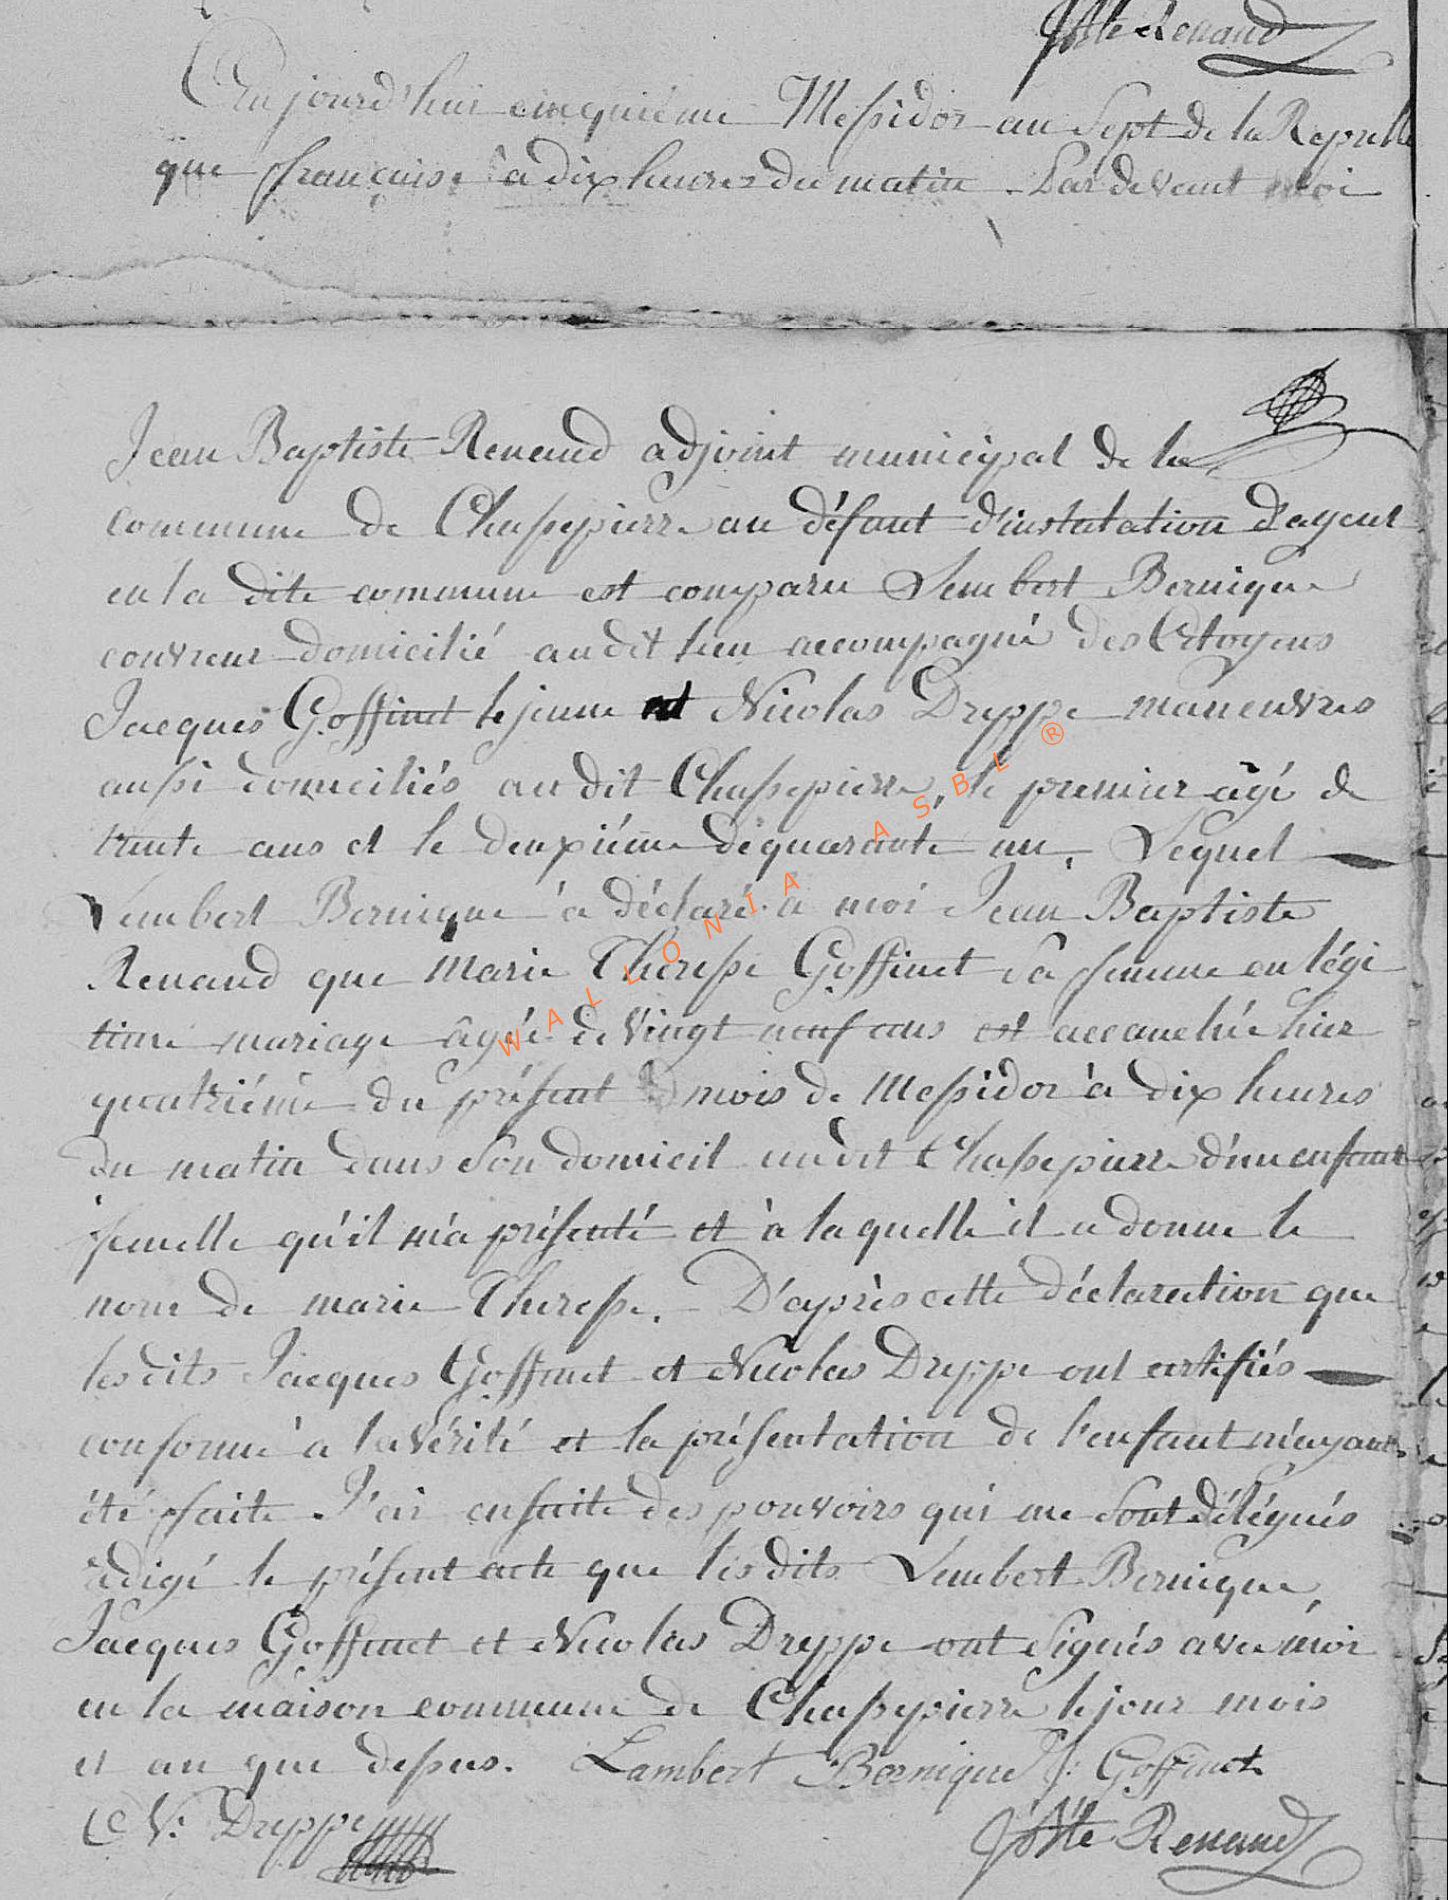 JBte Renaud
Aujourd'hui cinquième Messidor an Sept de la Republi
que française à dix heures du matin - Pardevant moi
Jean Baptiste Renaud adjoint municipal de la
commune de Chassepierre au défaut d'instalation d'agent
en la dite commune est comparu Lambert Bernique
couvreur domicilié audit lieu accompagné des Citoyens
Jacques Goffinet le jeune et Nicolas Dreppe maneuvres
aussi domiciliés audit Chassepierre, le premier âgé de
trente ans et le deuxième de quarante un. Lequel
Lambert Bernique à déclaré à moi Jean Baptiste
Renaud que Marie Theresse Goffinet sa femme en légi
time mariage âgée de vingt neuf ans est accouchée hier
quatrième du présent mois de Messidor à dix heures
du matin dans son domicil audit Chassepierre d'un enfant
femelle qu'il m'a présenté et à laquelle il a donne le
nom de marie Theresse. - D'après cette déclaration que
lesdits Jacques Goffinet et Nicolas Dreppe ont certifiés
conforme à la vérité et la présentation de l'enfant m'ayant
été faite. J'ai ensuite des pouvoirs qui me sont délégués
rédigé le présent acte que lesdits Lambert Bernique,
Jacques Goffinet et Nicolas Dreppe ont signés avec moi
en la maison commune de Chassepierre le jour mois
et an que dessus. Lambert Bernique J: Goffinet
N: Dreppe JBte Renaud
WALLONIA ASBL ®